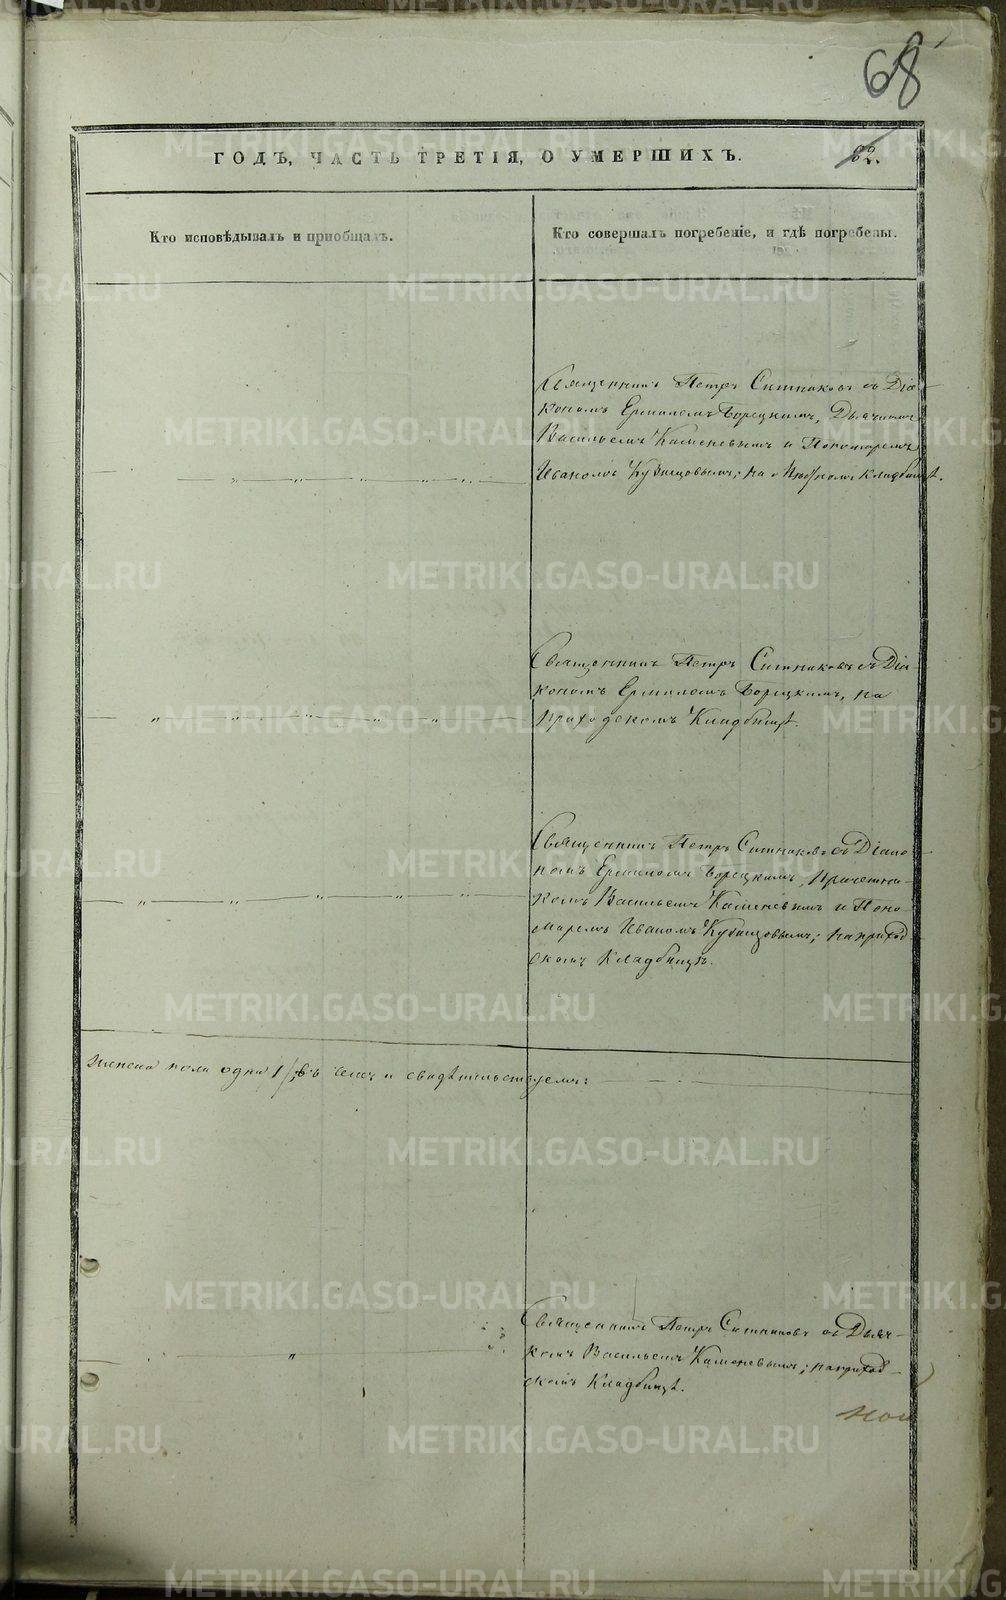 68
ГОДЪ, ЧАСТЬ ТРЕТІЯ, О УМЕРШИХЪ.
82.
Кто исповѣдывалъ и пріобщалъ.
Кто совершалъ погребеніе, и гдѣ погребены.
Священникъ Петръ Ситниковъ съ Діа-
кономъ Ермиломъ Борецкимъ, Дьячкомъ
Васильемъ Каменевымъ и Пономаремъ
Иваномъ Кузнецовымъ; на кладбищѣ.
Священникъ Петръ Ситниковъ съ Діа-
кономъ Ермиломъ Борецкимъ, на
приходскомъ Кладбищѣ.
Священникъ Петръ Ситниковъ съ Діако-
номъ Ермиломъ Борецкимъ, Причетни-
комъ Васильемъ Каменевымъ и Поно-
маремъ Иваномъ Кузнецовымъ; на приход-
скомъ Кладбищѣ.
женска пола одна 1/, въ чемъ и свидѣтельствуемъ:
Священникъ Петръ Ситниковъ съ Дьяч-
комъ Васильемъ Каменевымъ; на приход-
скомъ Кладбищѣ.
METRIKI.GASO-URAL.RU